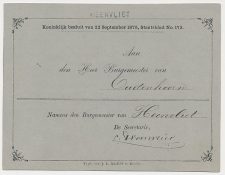 HEENVLIET
Koninklijk besluit van 22 September 1878, Staatsblad No. 172.
Aan
den Heer Burgemeester van
Oudenhoorn
Namens den Burgemeester van Heenvliet
De Secretaris,